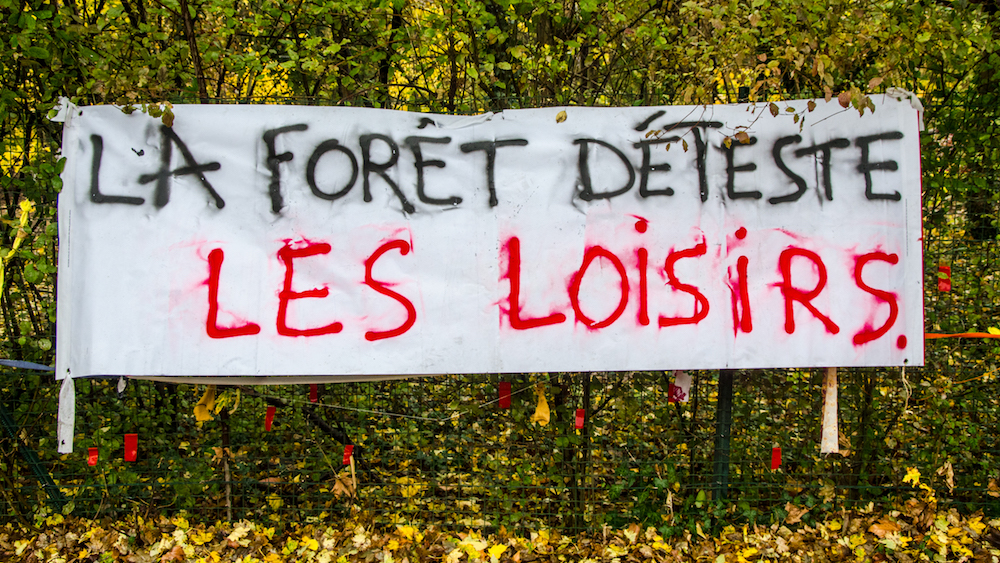 LA FORÊT DÉTESTE
LES LOiSiRS.